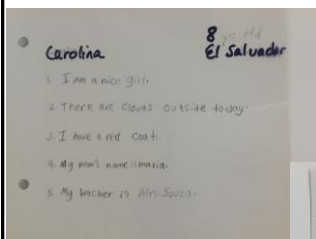 Carolina
8 yrs old
El Salvador
1. I am a nice girl.
2. There are clouds outside today.
3. I have a red coat.
4. My mom's name is maria.
5. My teacher is Mrs. Souza.